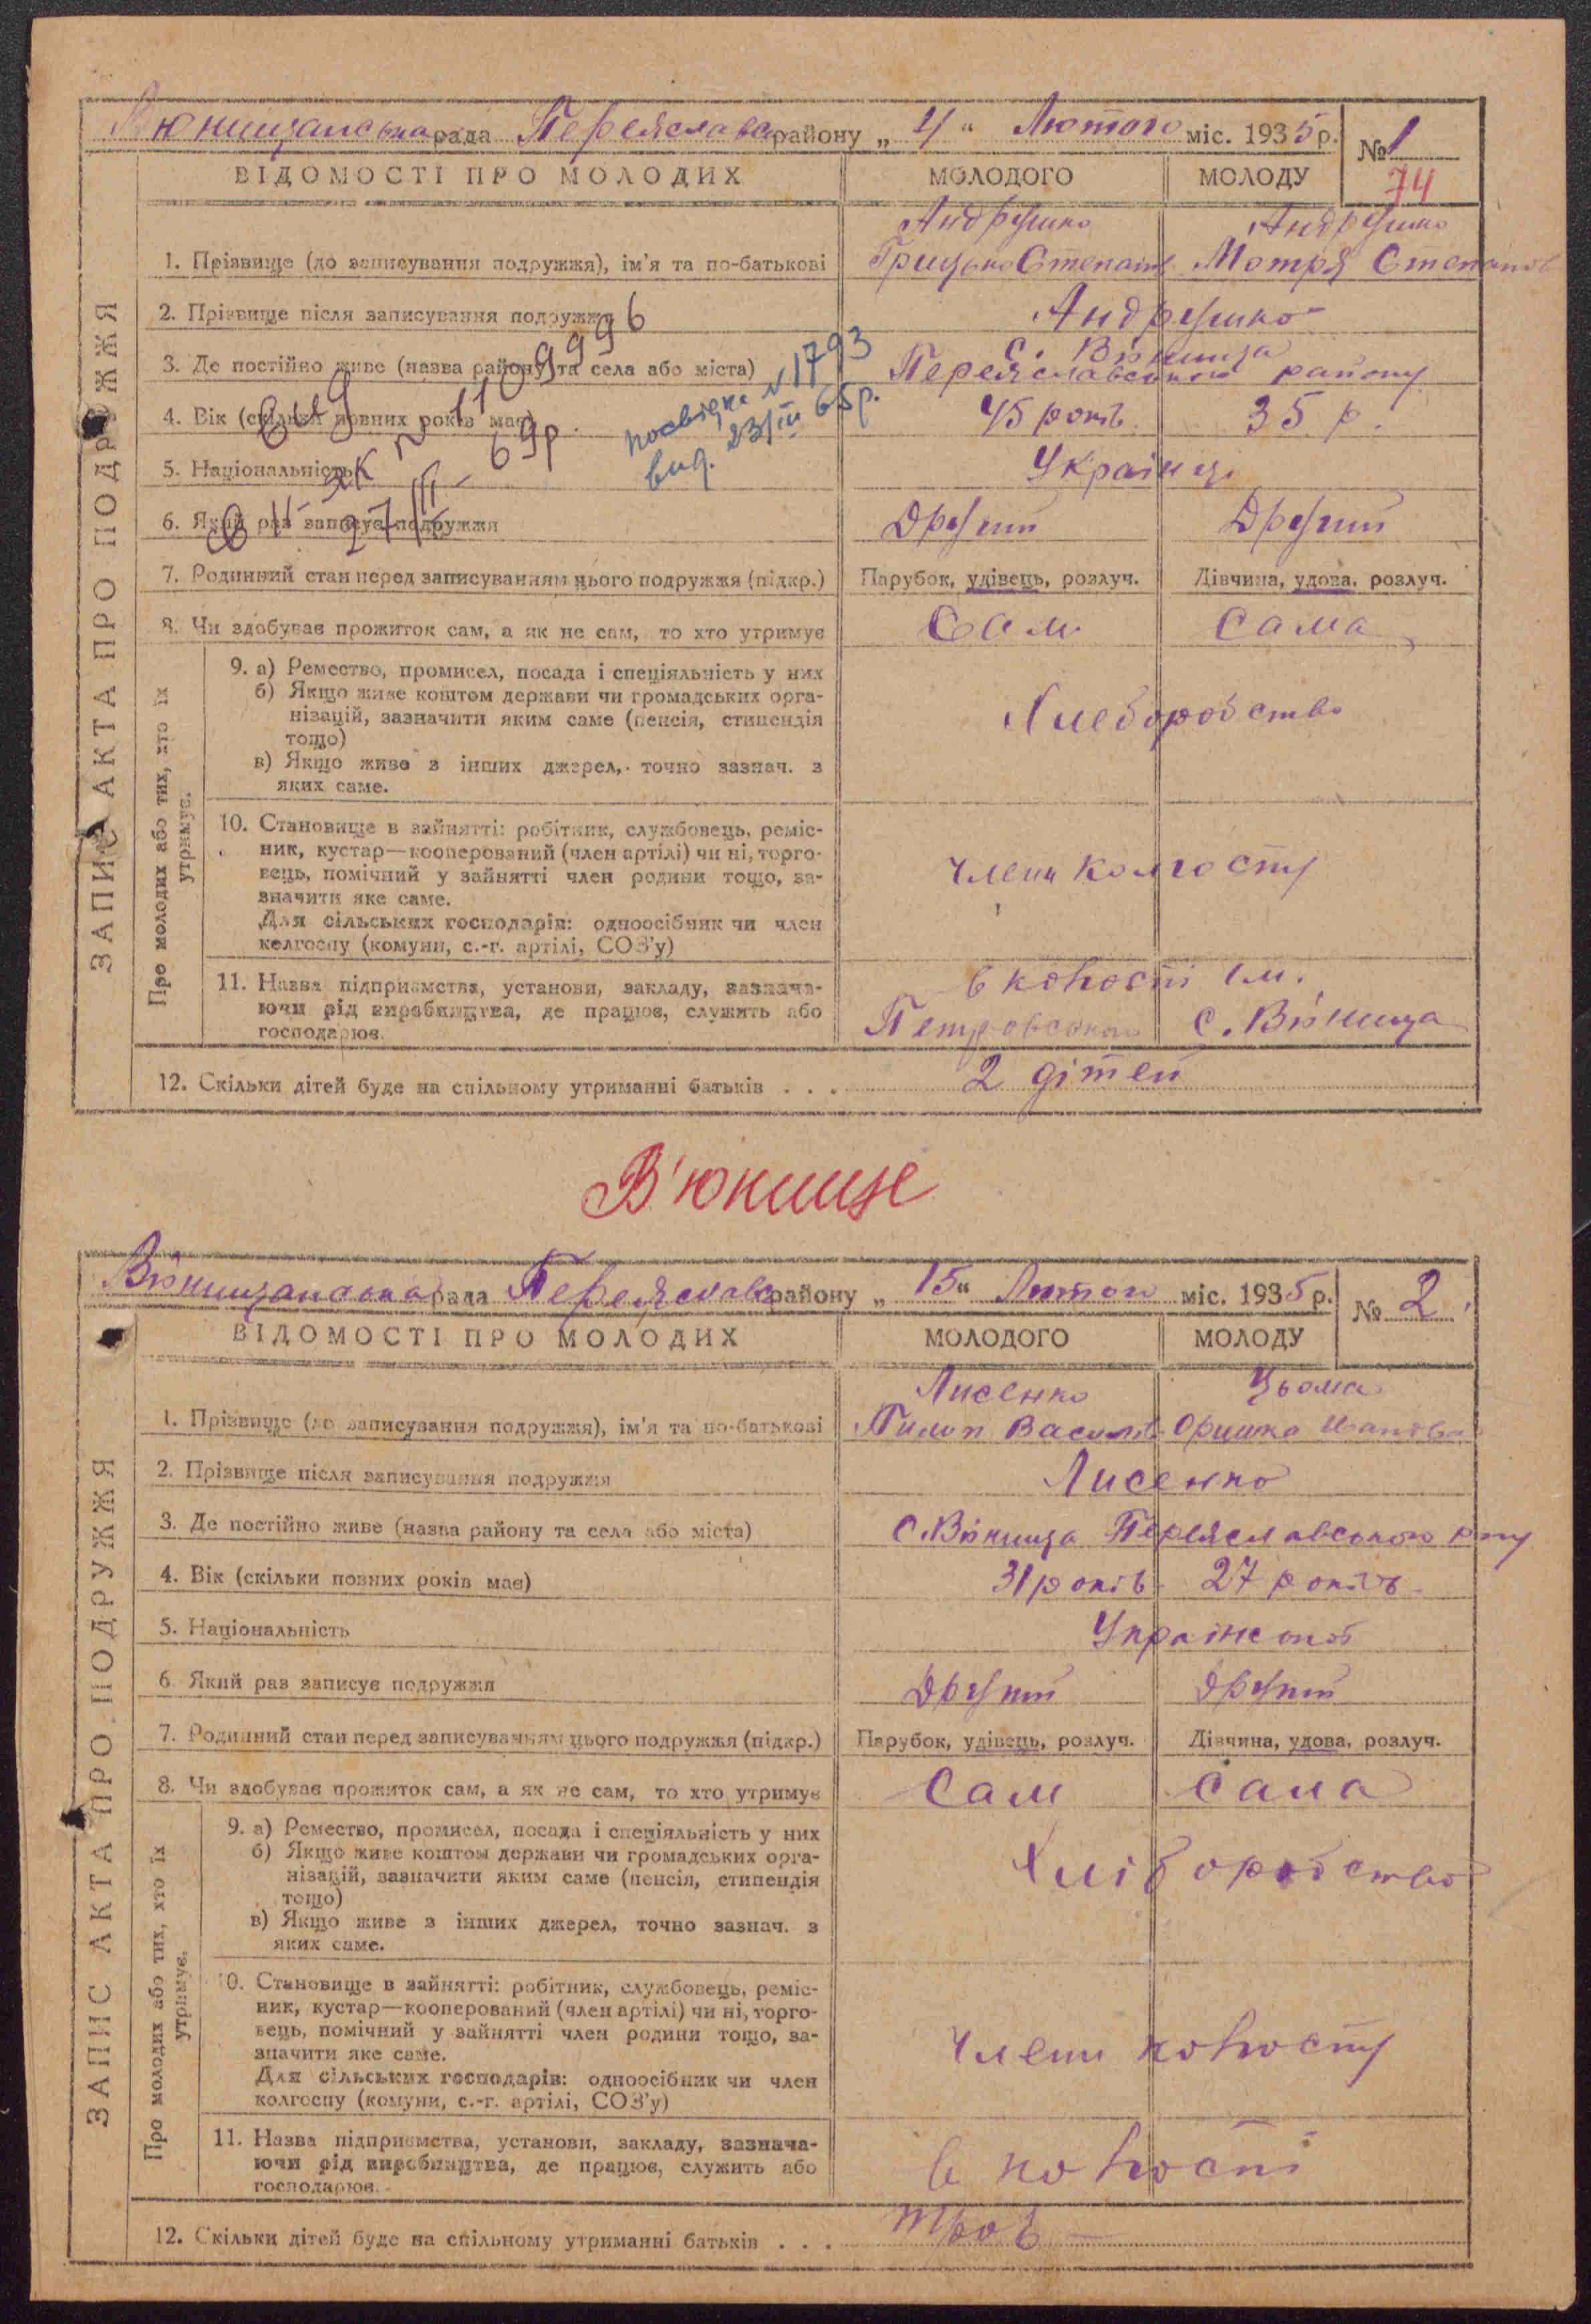 В'юнищанська рада Переяславс району „ 4 “ Лютого міс. 1935 р.
№ 1
74
ВІДОМОСТІ ПРО МОЛОДИХ
МОЛОДОГО
МОЛОДУ
ЗАПИС АКТА ПРО ПОДРУЖЖЯ
1. Прізвище (до записування подружжя), ім'я та по-батькові
Андрушко
Грицько Степанів
Андрушко
Мотря Степанов
2. Прізвище після записування подружжя
Андрушко
3. Де постійно живе (назва району та села або міста)
с. В'юнища
Переяславського району
4. Вік (скільки повних років має)
45 років
35 р.
5. Національність
Українці
6. Який раз записує подружжя
Другий
Другий
7. Родинний стан перед записуванням цього подружжя (підкр.)
Парубок, удівець, розлуч.
Дівчина, удова, розлуч.
8. Чи здобуває прожиток сам, а як не сам, то хто утримує
Сам
Сама
Про молодих або тих, хто їх
утримує.
9. а) Ремество, промисел, посада і спеціяльність у них
б) Якщо живе коштом держави чи громадських орга-
нізацій, зазначити яким саме (пенсія, стипендія
тощо)
в) Якщо живе з інших джерел, точно зазнач. з
яких саме.
Хлеборобство
10. Становище в зайнятті: робітник, службовець, реміс-
ник, кустар—кооперований (член артілі) чи ні, торго-
вець, помічний у зайнятті член родини тощо, за-
значити яке саме.
Для сільських господарів: одноосібник чи член
колгоспу (комуни, с.-г. артілі, СОЗ'у)
члени колгоспу
11. Назва підприємства, установи, закладу, зазнача-
ючи рід виробництва, де працює, служить або
господарює.
в колгоспі ім.
Петровського с. В'юнища
12. Скільки дітей буде на спільному утриманні батьків . . .
2 дітей
9996
вид
110
69р.
27/III-
посвідка №1793
вид. 23/III 65р.
В'юнище
В'юнищанська рада Переяславс району „ 15 “ Лютого міс. 1935 р.
№ 2
ВІДОМОСТІ ПРО МОЛОДИХ
МОЛОДОГО
МОЛОДУ
ЗАПИС АКТА ПРО ПОДРУЖЖЯ
1. Прізвище (до записування подружжя), ім'я та по-батькові
Лисенко
Пилип Василів
Цьома
Оришка Іванівна
2. Прізвище після записування подружжя
Лисенко
3. Де постійно живе (назва району та села або міста)
с. В'юнища Переяславського р-ну
4. Вік (скільки повних років має)
31 років
27 років
5. Національність
6. Який раз записує подружжя
Другий
Другий
7. Родинний стан перед записуванням цього подружжя (підкр.)
Парубок, удівець, розлуч.
Дівчина, удова, розлуч.
8. Чи здобуває прожиток сам, а як не сам, то хто утримує
Сам
сама
Про молодих або тих, хто їх
утримує.
9. а) Ремество, промисел, посада і спеціяльність у них
б) Якщо живе коштом держави чи громадських орга-
нізацій, зазначити яким саме (пенсія, стипендія
тощо)
в) Якщо живе з інших джерел, точно зазнач. з
яких саме.
Хліборобство
10. Становище в зайнятті: робітник, службовець, реміс-
ник, кустар—кооперований (член артілі) чи ні, торго-
вець, помічний у зайнятті член родини тощо, за-
значити яке саме.
Для сільських господарів: одноосібник чи член
колгоспу (комуни, с.-г. артілі, СОЗ'у)
члени колгоспу
11. Назва підприємства, установи, закладу, зазнача-
ючи рід виробництва, де працює, служить або
господарює.
в колгоспі
12. Скільки дітей буде на спільному утриманні батьків . . .